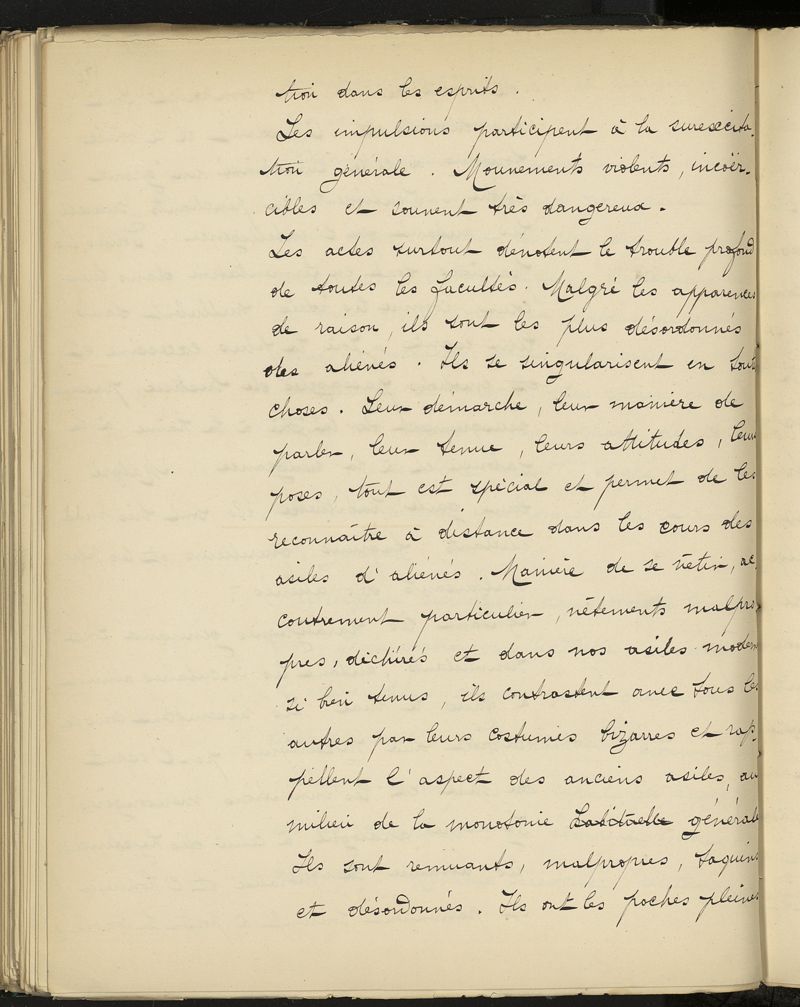 tion dans les esprits.
Les impulsions participent à la surexcita-
tion générale. Mouvements violents, incoër-
cibles et souvent très dangereux.
Les actes surtout dénotent le trouble profond
de toutes les facultés. Malgré les apparences
de raison, ils sont les plus désordonnés
des aliénés. Ils se singularisent en tout
choses. Leur démarche, leur manière de
parler, leur tenue, leurs attitudes, leur
poses, tout est spécial et permet de les
reconnaître à distance dans les cours des
asiles d'aliénés. Manière de se vêtir, ac-
coutrement particulier, vêtements malpro-
pres, déchirés et dans nos asiles modern
si bien tenus, ils contrastent avec tous les
autres par leurs costumes bizarres et rap-
pellent l'aspect des anciens asiles, au
milieu de la monotonie habituelle générale
Ils sont remuants, malpropres, taquins
et désordonnés. Ils ont les poches pleines